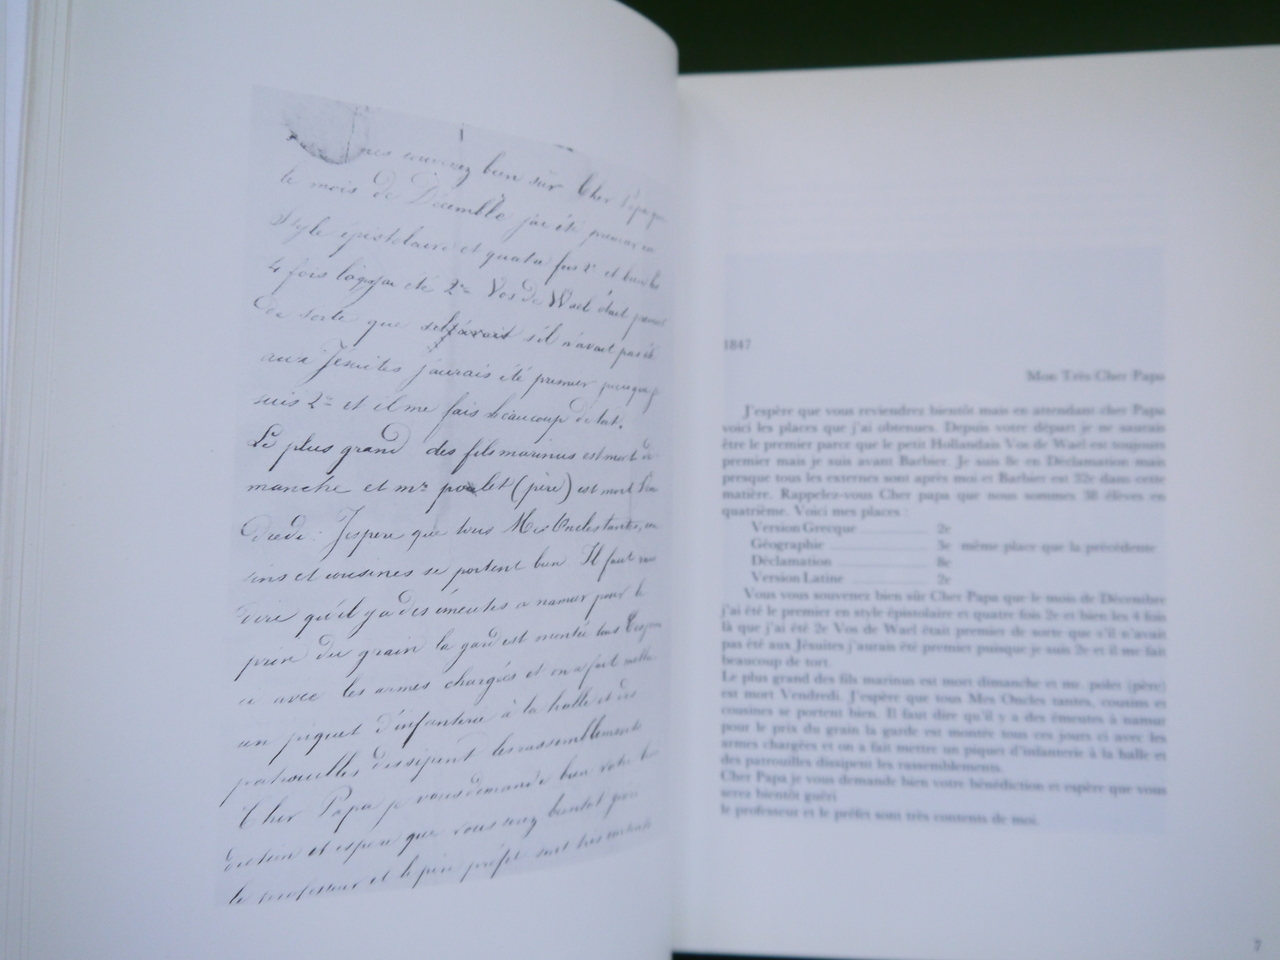 nes souvenez bien sûr Cher Papa que
le mois de Décembre j'ai été premier en
Style épistolaire et quatre fois 2e et bien les
4 fois là que j'ai été 2e Vos de Wael était premier
De sorte que s'il n'avait pas été
aux Jesuites j'aurais été premier puisque je
suis 2e et il me fais beaucoup de tort.
Le plus grand des fils marinus est mort di
manche et mr poulet (père) est mort Ven
dredi. J'espere que tous Mes Oncles tantes, cou
sins et cousines se portent bien. Il faut vous
dire qu'il y a des émeutes a namur pour le
prix du grain la gard est montée tous les jours
ci avec les armes chargés et on a fait mettre
un piquet d'infanterie à la halle et des
patrouilles dissipent les rassemblements
Cher Papa je vous demande bien votre béné
diction et espere que vous serez bientot guéri
le professeur et le père préfet sont très contents
1847
Mon Très Cher Papa
J'espère que vous reviendrez bientôt mais en attendant cher Papa
voici les places que j'ai obtenues. Depuis votre départ je ne saurais
être le premier parce que le petit Hollandais Vos de Wael est toujours
premier mais je suis avant Barbier. Je suis 8e en Déclamation mais
presque tous les externes sont après moi et Barbier est 32e dans cette
matière. Rappelez-vous Cher papa que nous sommes 38 élèves en
quatrième. Voici mes places :
Version Grecque 2e
Géographie 3e même place que la précédente
Déclamation 8e
Version Latine 2e
Vous vous souvenez bien sûr Cher Papa que le mois de Décembre
j'ai été le premier en style épistolaire et quatre fois 2e et bien les 4 fois
là que j'ai été 2e Vos de Wael était premier de sorte que s'il n'avait
pas été aux Jésuites j'aurais été premier puisque je suis 2e et il me fait
beaucoup de tort.
Le plus grand des fils marinus est mort dimanche et mr. polet (père)
est mort Vendredi. J'espère que tous Mes Oncles tantes, cousins et
cousines se portent bien. Il faut dire qu'il y a des émeutes à namur
pour le prix du grain la garde est montée tous ces jours ci avec les
armes chargées et on a fait mettre un piques d'infanterie à la halle et
des patrouilles dissipent les rassemblements.
Cher Papa je vous demande bien votre bénédiction et espère que vous
serez bientôt guéri
le professeur et le préfès sont très contents de moi.
7